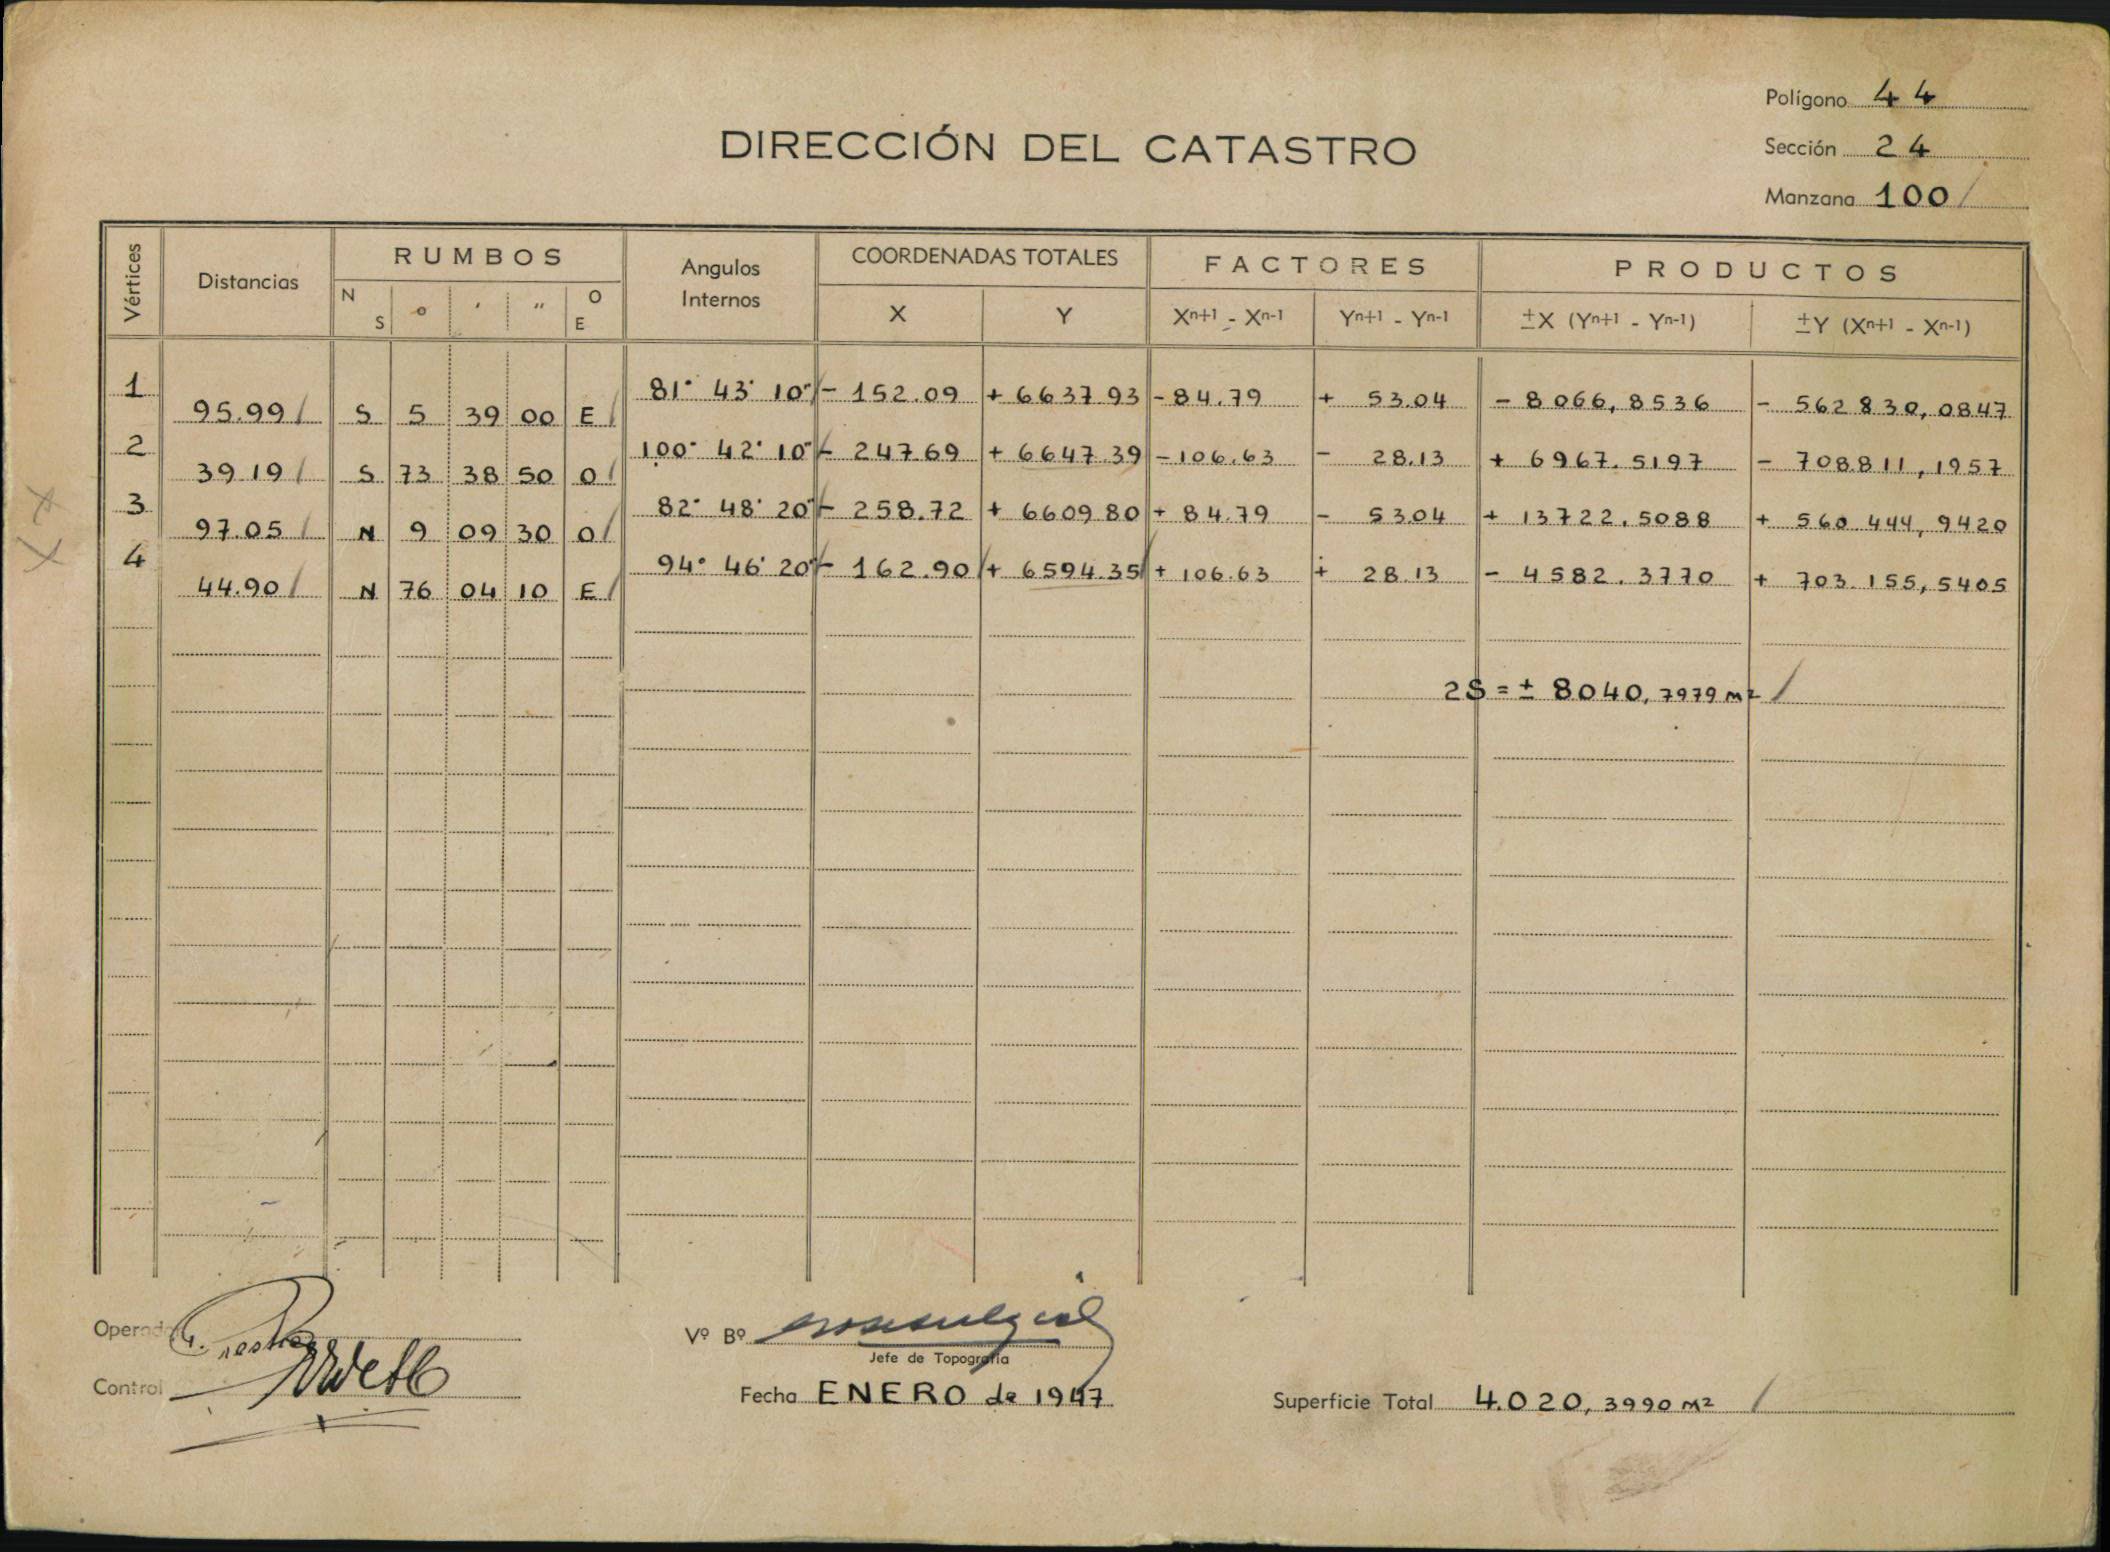 Polígono 44
DIRECCIÓN DEL CATASTRO
Sección 24
Manzana 100
Vértices
Distancias
RUMBOS
N S ° ′ ″ O E
Angulos Internos
COORDENADAS TOTALES
X Y
FACTORES
Xn+1 - Xn-1 Yn+1 - Yn-1
PRODUCTOS
±X (Yn+1 - Yn-1) ±Y (Xn+1 - Xn-1)
1 81° 43' 10" - 152.09 + 6637.93 - 84.79 + 53.04 - 8066,8536 - 562830,0847
95.99 S 5 39 00 E
2 100° 42' 10" - 247.69 + 6647.39 - 106.63 - 28.13 + 6967.5197 - 708811,1957
39.19 S 73 38 50 O
3 82° 48' 20" - 258.72 + 6609.80 + 84.79 - 53.04 + 13722.5088 + 560444,9420
97.05 N 9 09 30 O
4 94° 46' 20" - 162.90 + 6594.35 + 106.63 + 28.13 - 4582.3770 + 703.155,5405
44.90 N 76 04 10 E
2S = ± 8040,7979 m2
Operador
Vº Bº
Jefe de Topografía
Control
Fecha ENERO de 1947
Superficie Total 4.020,3990 m2